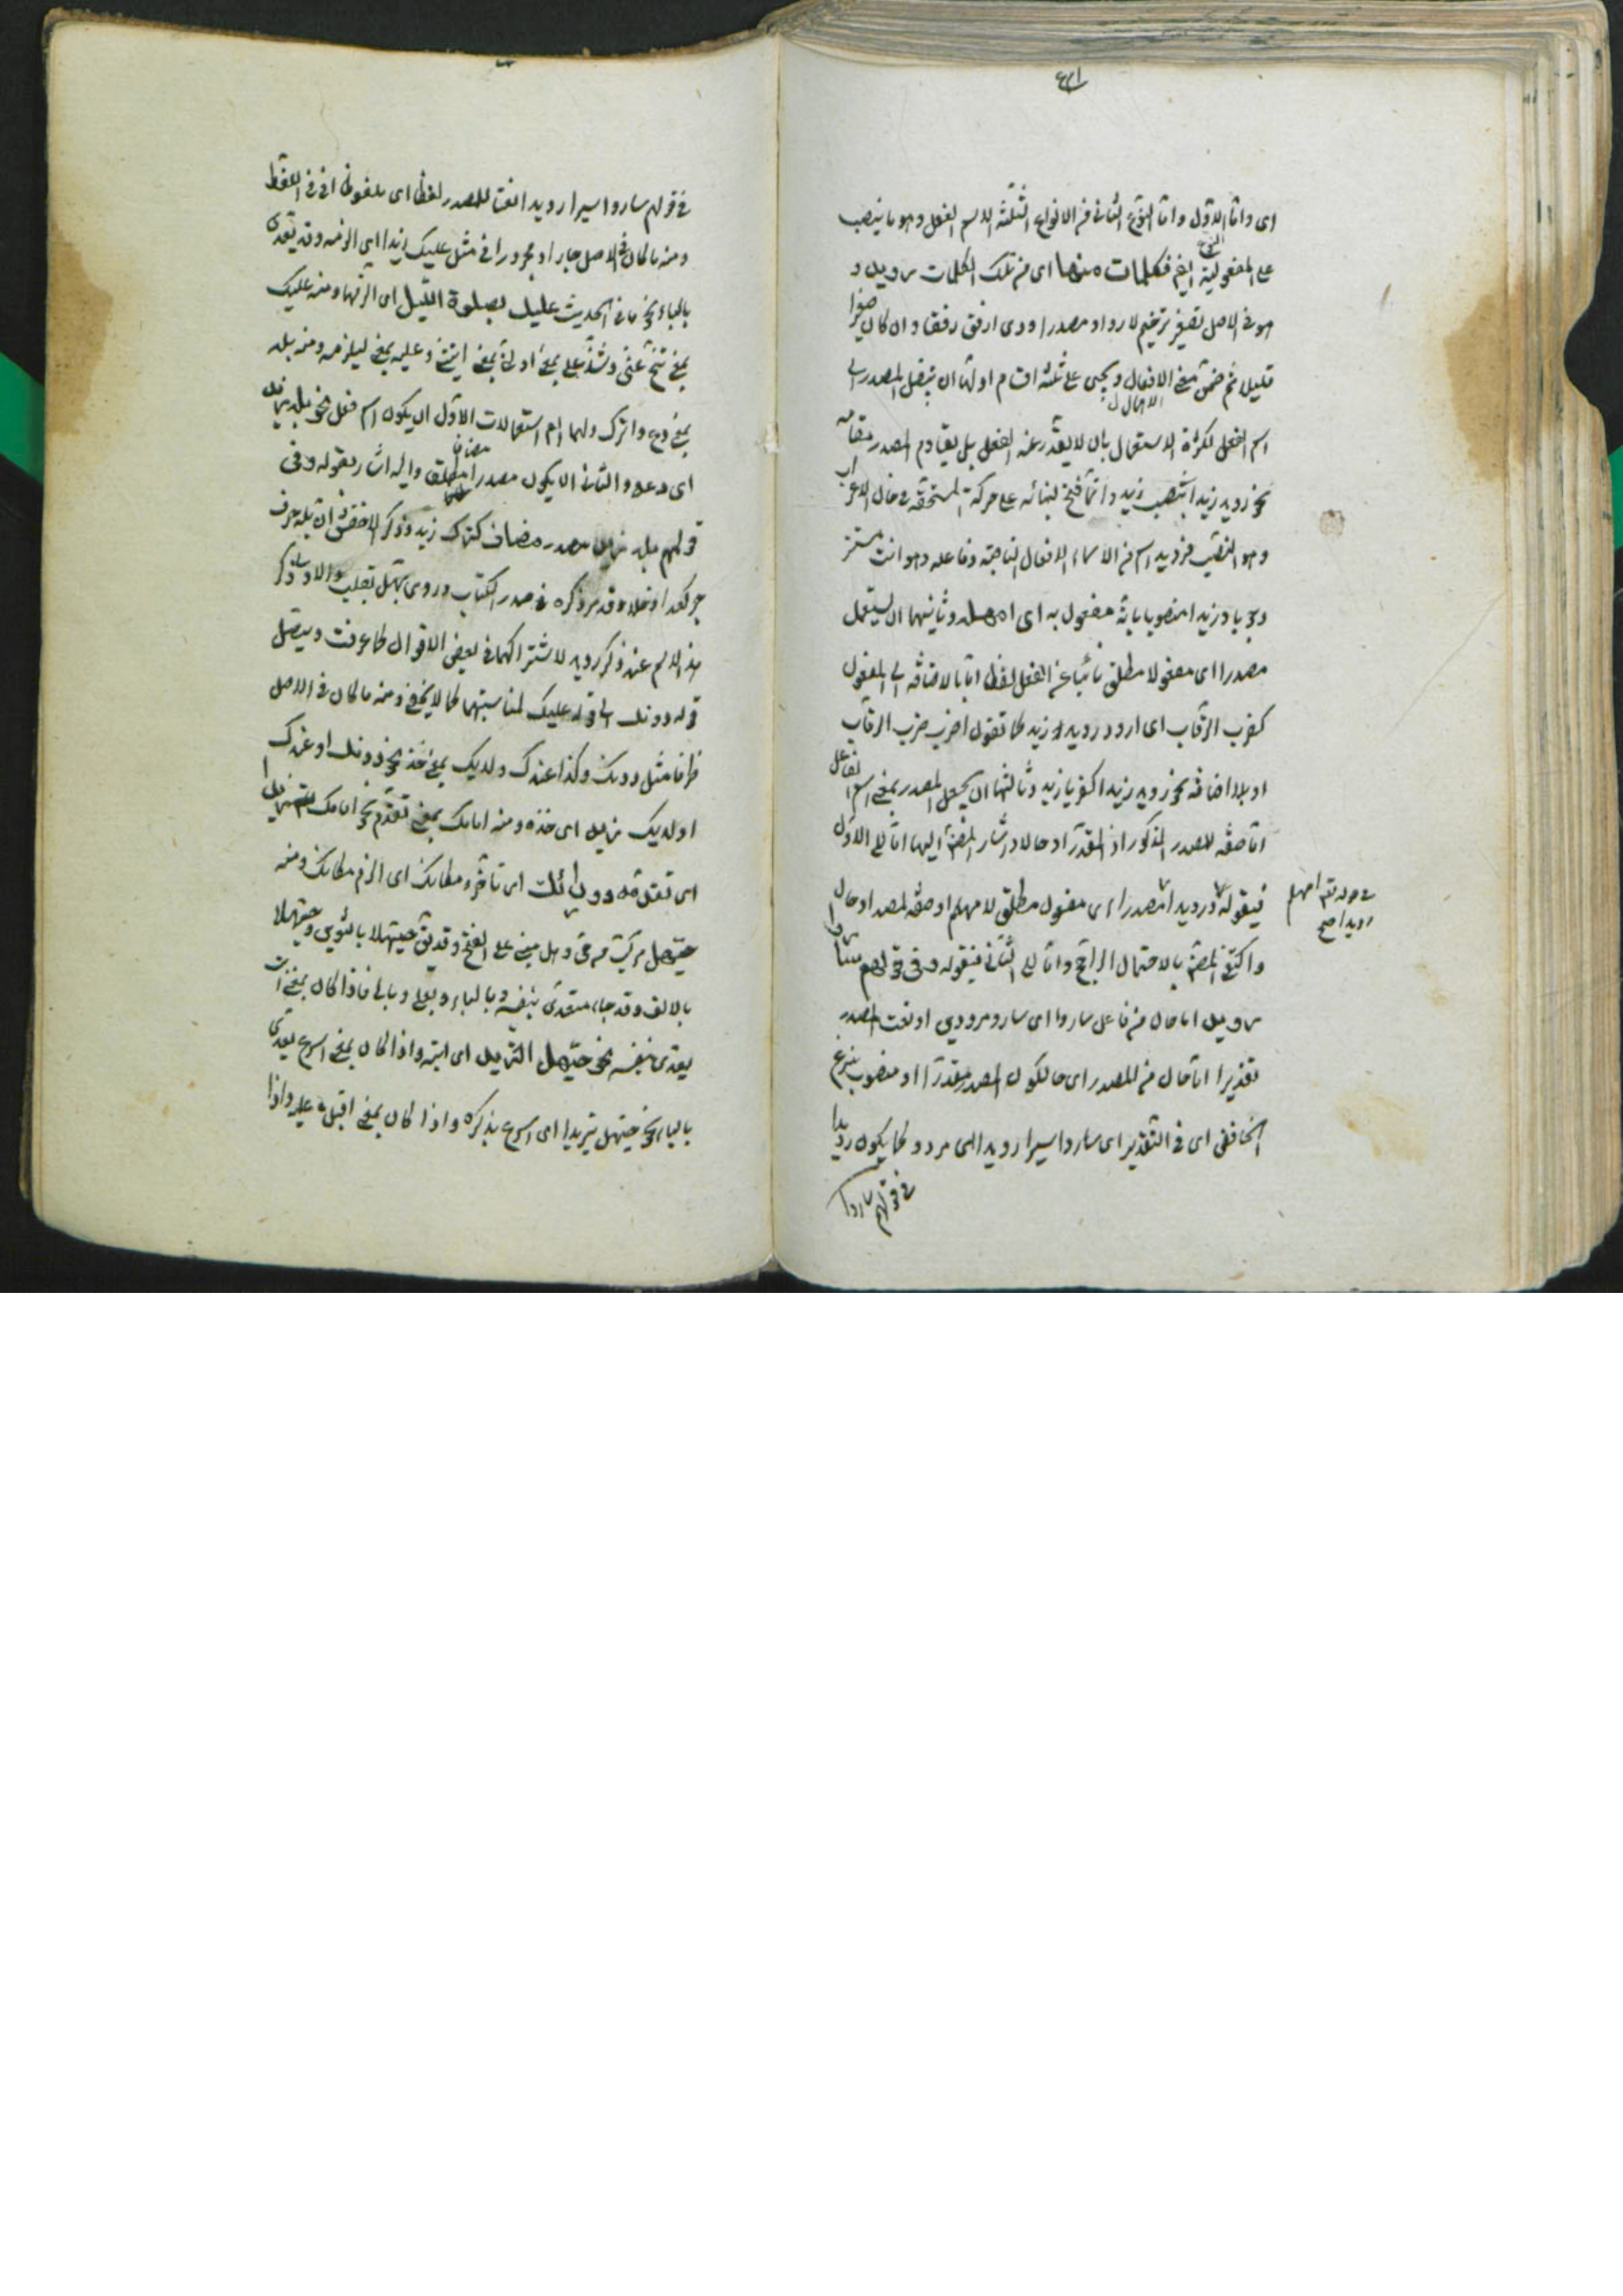 اى واما الاول واما النوع الثانى من الانواع الثلثة لاسم الفعل وهو ما ينصب
على المفعولية ايضا فكلمات منها اى من تلك الكلمات رويد و
هو فى الاصل تصغير ترخيم لارواد مصدر اروى ارفق رفقا وان كان صغيرا
قليلا ثم ضمن معنى الافعال ويجيى على ثلثة اقسام اولها ان ينقل المصدر الى
اسم الفعل لكثرة الاستعمال بان لا يقدر عنه الفعل بل يقام المصدر مقامه
نحو رويد زيدا بنصب زيد وانما فتح لبنائه على حركة المستحقة فى حال الاعراب
وهو النصب فرويد اسم من الاسماء الافعال الناصبة وفاعله وهو انت مستتر
وجوبا وزيدا منصوبا بانه مفعول به اى امهل وثانيهما ان يستعمل
مصدرا اى مفعولا مطلق نائبا عن الفعل لفظا اما بالاضافة الى المفعول
كضرب الرقاب اى ارود رويد زيد كما تقول اضرب ضرب الرقاب
او بلا اضافة نحو رويد زيدا كضربا زيد وثالثها ان يجعل المصدر بمعنى اسم الفاعل
اما صفة للمصدر المذكور او المقدر او حالا واشار المصنف اليها اما الى الاول
فبقوله ورويدا مصدرا اى مفعول مطلق لا مهلم او صفة لمصدر او حال
رويدا صح
واكتفى المصنف بالاحتمال الراجح واما الى الثانى فبقوله وفى قولهم ساروا
رويد اما حال من فاعل ساروا اى ساروا مرودين او نعت المصدر
تقديرا اما حال من المصدر اى حالكون المصدر مقدرا او منصوب بنزع
الخافض اى فى التقدير اى ساروا سيرا رويدا اى مرودا كما يكون رويدا
فى قولهم ساروا
فى قولهم ساروا سيرا رويدا نعتا للمصدر لفظا اى ملفوظا اى فى اللفظ
ومنه ما كان فى الاصل جارا او مجرورا فى مثل عليك زيدا اى الزمه وقد يتعدى
بالباء نحو ما فى الحديث عليك بصلوة الليل اى الزمها ومنه عليك
بمعنى تنح عنى وشذ على بمعنى اولنى بمعنى ايتنى وعليه بمعنى ليلزمه ومنه بله
بمعنى دع واترك ولها اربع استعمالات الاول ان يكون اسم فعل نحو بله زيدا
اى دعه والثانى ان يكون مصدرا مطلق واليه اشار بقوله وفى
قولهم بله زيد مصدر مضاف كترك زيد وذكر الاخفش ان بله حرف
جر كعدا وخلا وقد مر ذكره فى صدر الكتاب وروى بهل بقلب والاولى ذكر
هذا الاسم عند ذكر رويد لاشتراكهما فى بعض الاقوال كما عرفت ويتصل
قوله دونك الى قوله عليك لمناسبتهما كما لا يخفى ومنه ما كان فى الاصل
ظرفا مثل دونك وكذا عندك ولديك بمعنى خذ نحو دونك او عندك
او لديك زيدا اى خذه ومنه امامك بمعنى تقدم نحو امامك
اى تقدمه ووراءك اى تاخر ومكانك اى الزم مكانك ومنه
حيهل مركب من حى وهل مبنى على الفتح وقد يق حيهلا بالتنوين وحيهلا
بالالف وقد جاء متعدى بنفسه وبالباء وبعلى وبالى فاذا كان بمعنى ايت
يعدى بنفسه نحو حيهل الثريد اى ايته واذا كان بمعنى اسرع يعدى
بالباء نحو حيهل بزيد اى اسرع بذكره واذا كان بمعنى اقبل فعلى واذا